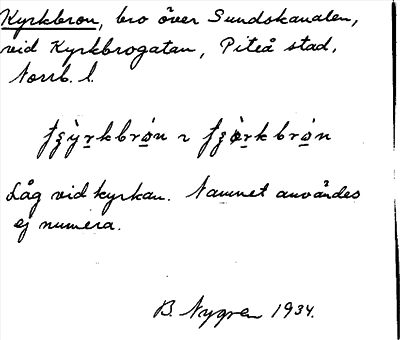 Kyrkbron, bro över Sundskanalen,
vid Kyrkbrogatan, Piteå stad,
Norrb. l.
Låg vid kyrkan. Namnet användes
ej numera.
B. Nygren 1934.